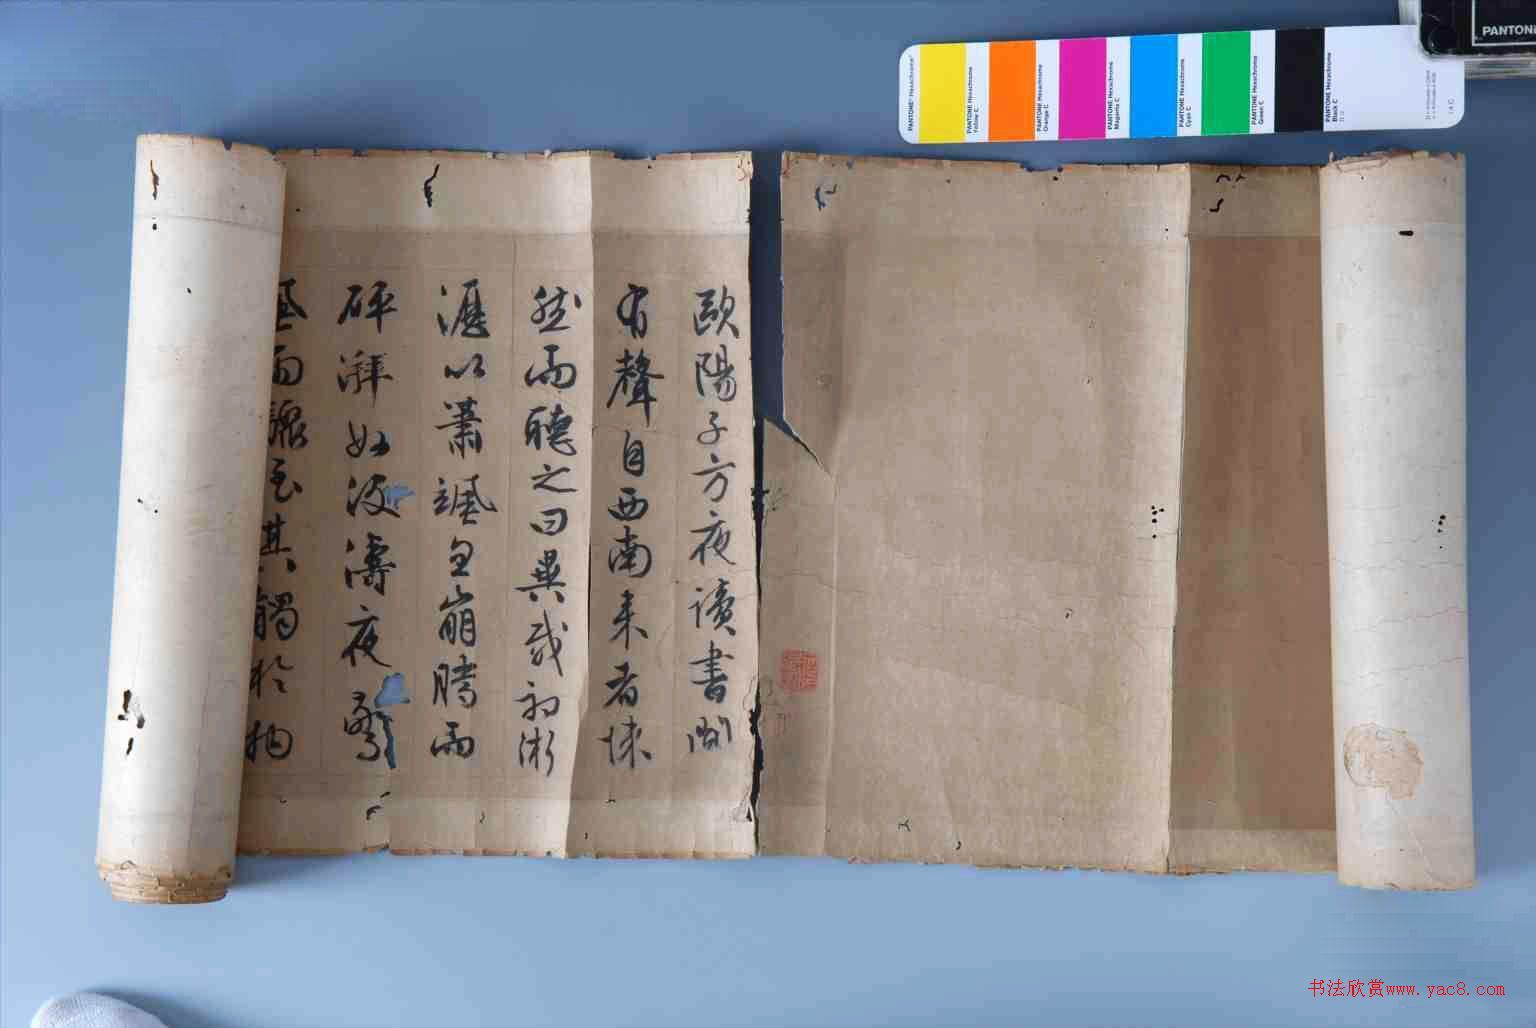 歐陽子方夜讀書聞
有聲自西南来者悚
然而聽之曰異哉初淅
瀝以蕭颯忽崩騰而
砰湃如波濤夜驚
風雨驟至其觸於物
PANTONE® Hexachrome®
PANTONE Hexachrome
Yellow C
PANTONE Hexachrome
Orange C
PANTONE Hexachrome
Magenta C
PANTONE Hexachrome
Cyan C
PANTONE Hexachrome
Green C
PANTONE Hexachrome
Black C
PANTONE
书法欣赏www.yac8.com